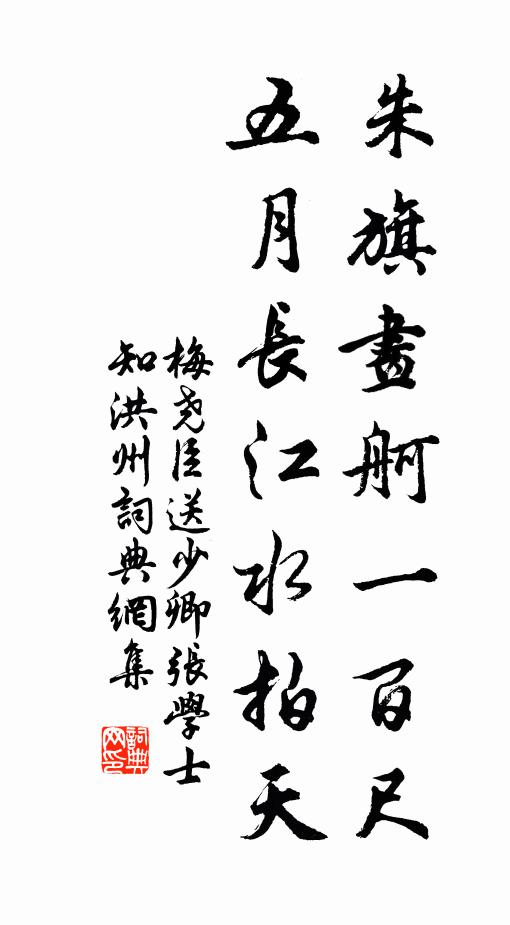 朱旗畫舸一百尺
五月長江水拍天
梅尧臣送少卿張學士
知洪州詞典網集
詞典
网印